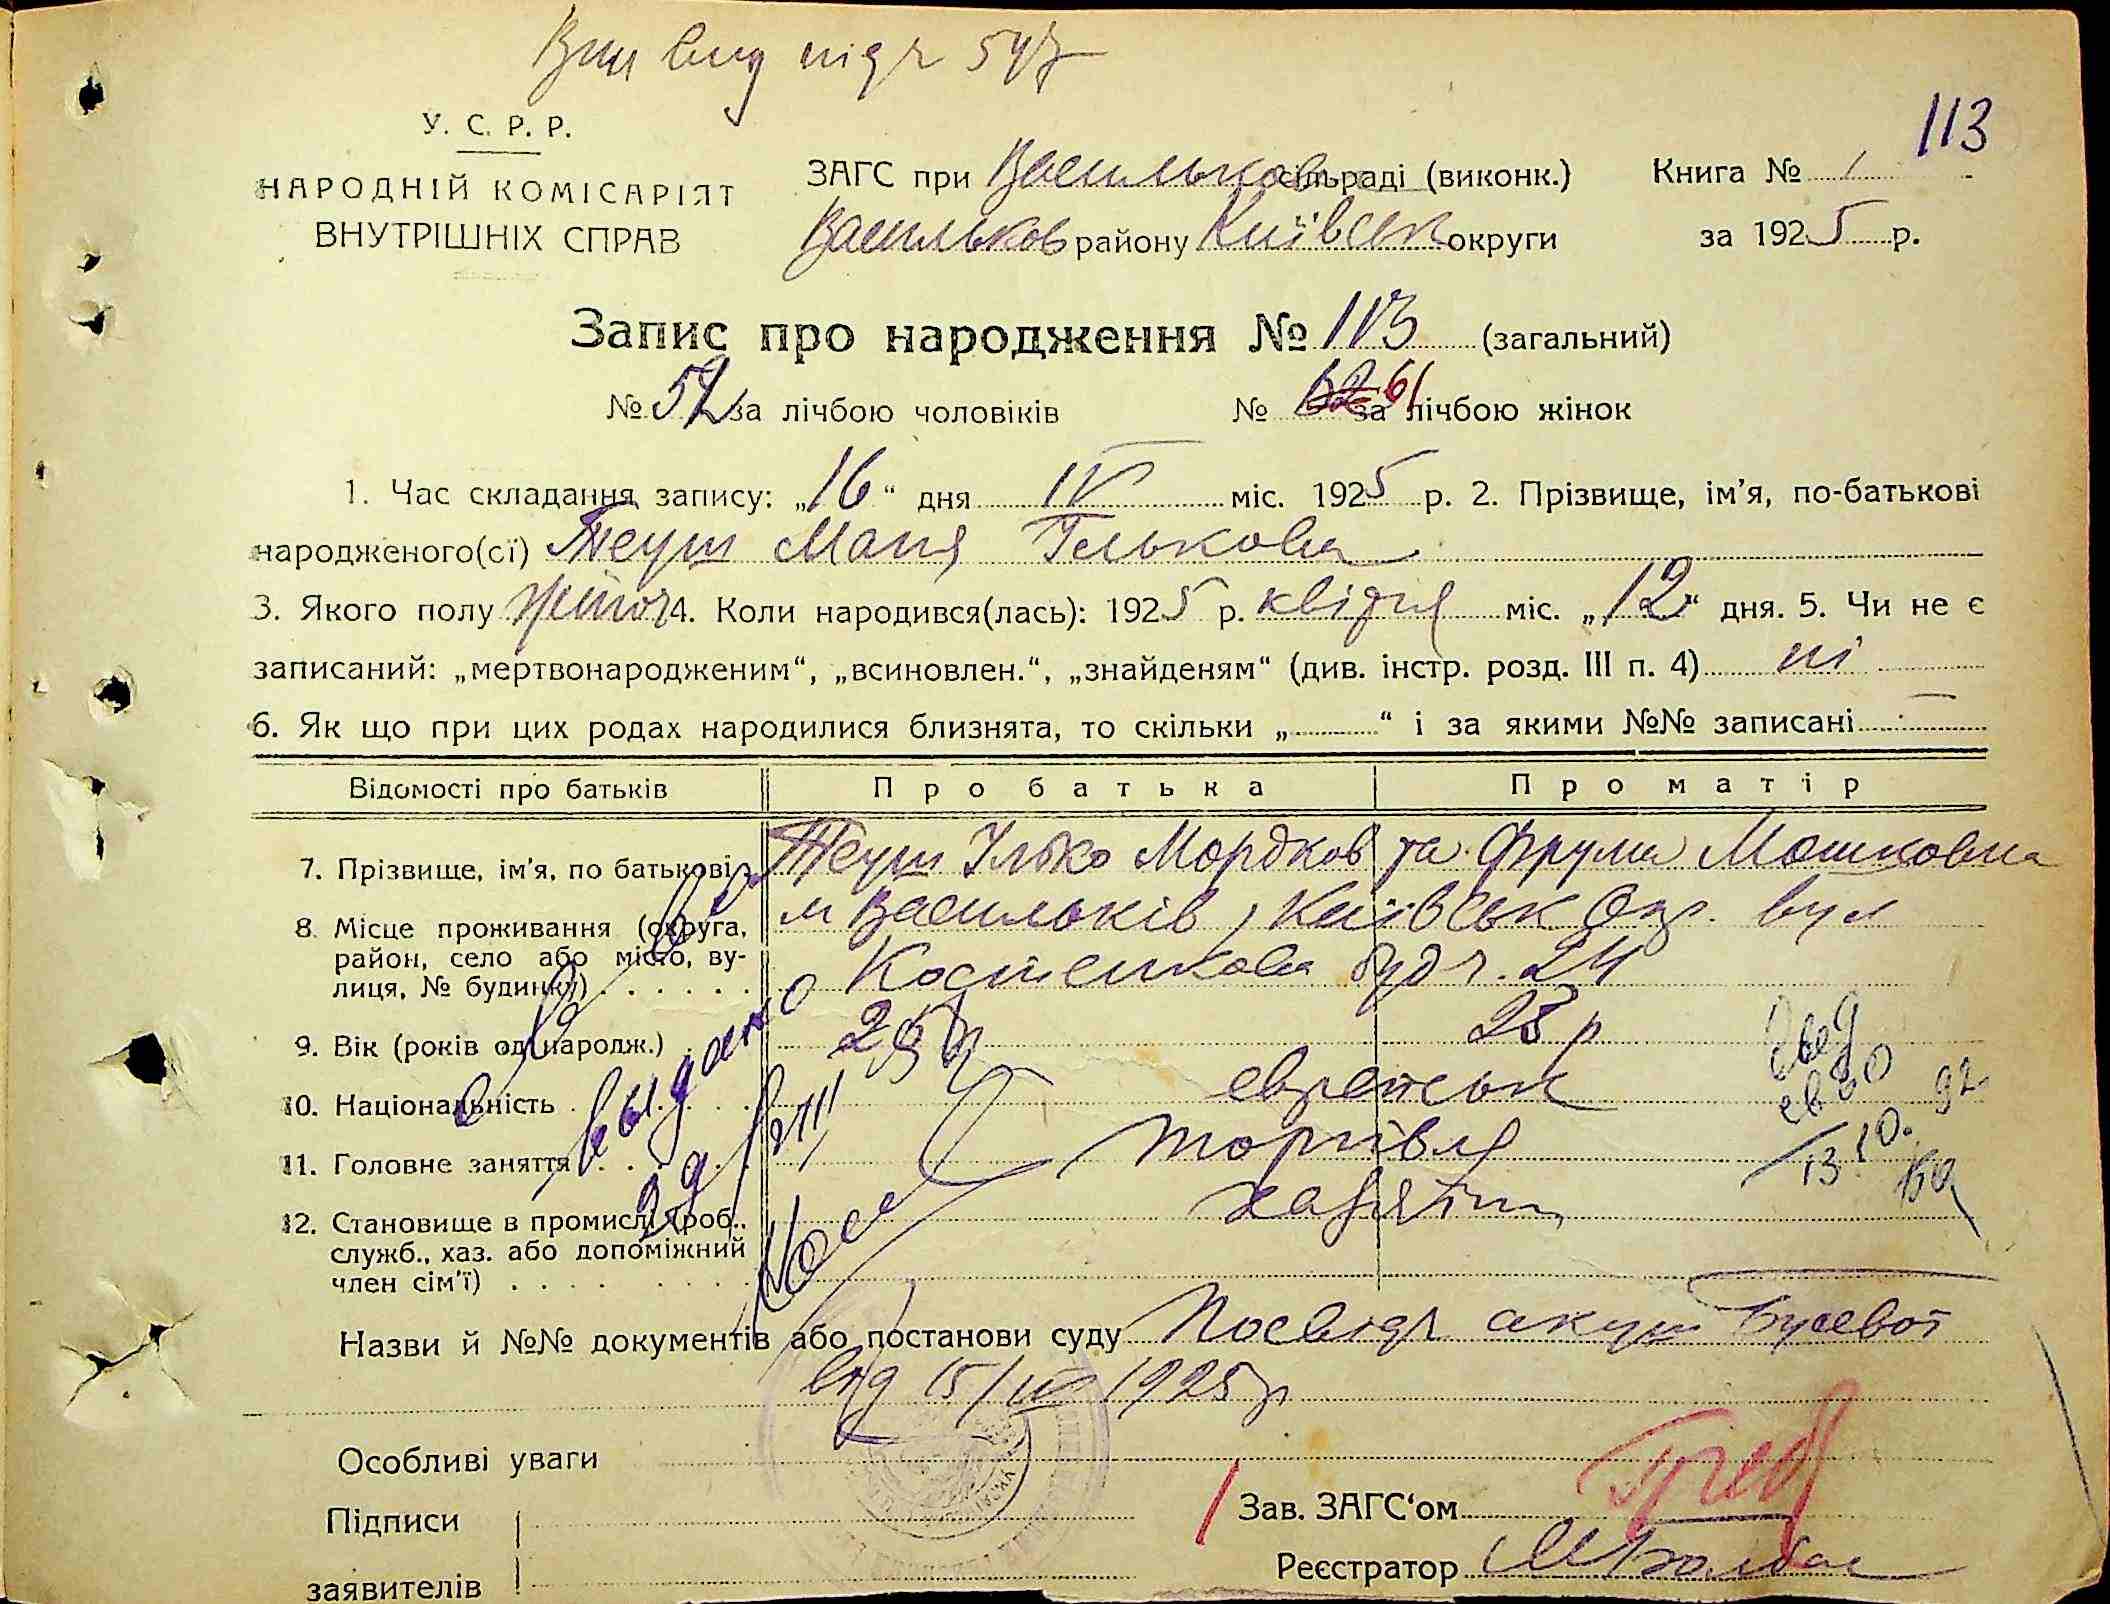 Вип
113
У. С. Р. Р.
НАРОДНІЙ КОМІСАРІЯТ
ВНУТРІШНІХ СПРАВ
ЗАГС при Васильков сільраді (виконк.)
Васильков району Київськ округи
Книга № 1
за 1925 р.
Запис про народження № 113 (загальний)
№ 52 за лічбою чоловіків № 62 61 за лічбою жінок
1. Час складання запису: „16“ дня IV міс. 1925 р. 2. Прізвище, ім'я, по-батькові
народженого(ої) Теуш Маня Ількова
3. Якого полу жіноч 4. Коли народився(лась): 1925 р. квітня міс. „12“ дня. 5. Чи не є
записаний: „мертвонародженим“, „всиновлен.“, „знайденям“ (див. інстр. розд. III п. 4) ні
6. Як що при цих родах народилися близнята, то скільки „ “ і за якими №№ записані —
Відомості про батьків Про батька Про матір
7. Прізвище, ім'я, по батькові Теуш Ілько Мордков та Фрума Мошковна
8. Місце проживання (округа, м Васильків, Київськ Окр. вул
район, село або місто, ву-
лиця, № будинку) Костенкова буд ч. 24
9. Вік (років од народж.) 29 р 23 р
10. Національність еврейськ
11. Головне заняття торгівля
12. Становище в промислі (роб., хазяїн
служб., хаз. або допоміжний
член сім'ї)
выдано
13 10. 92
Назви й №№ документів або постанови суду Посвідч акуш Бусевої
від 15/IV 1925 р
Особливі уваги
Підписи
заявителів
Зав. ЗАГС'ом
Реєстратор